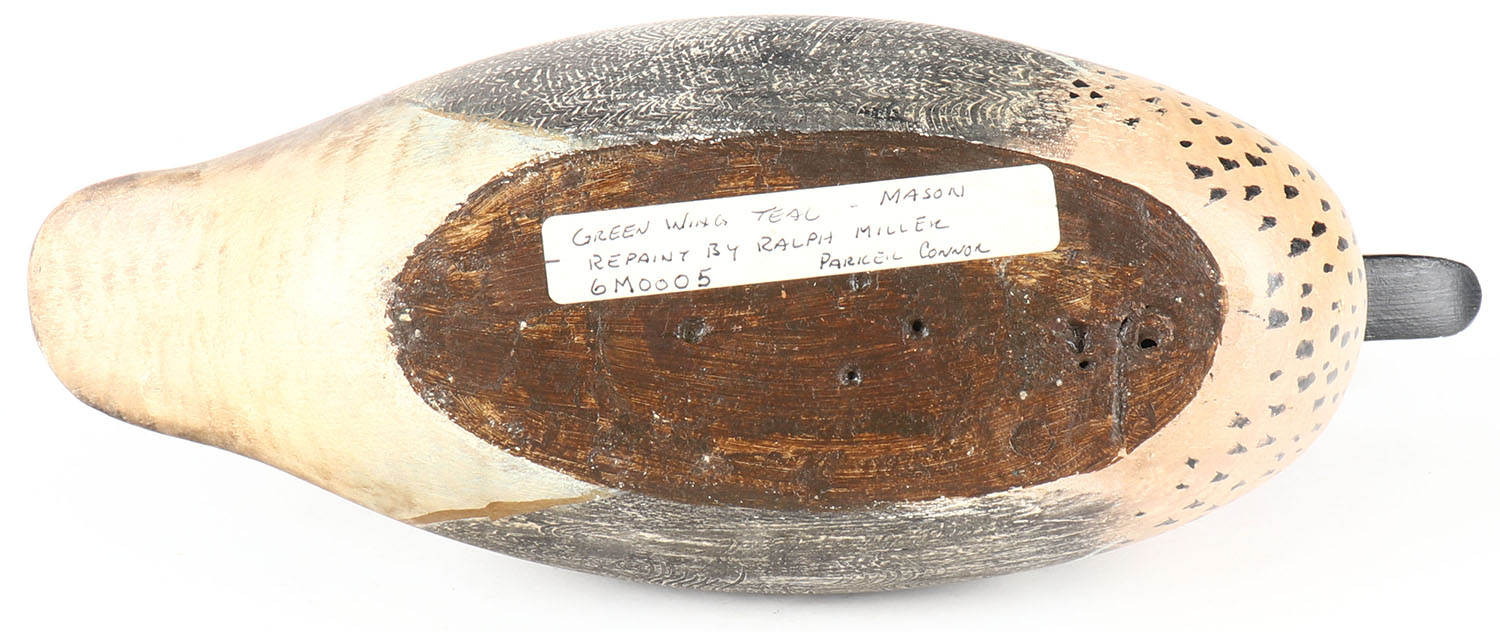 GREEN WING TEAL - MASON
REPAINT BY RALPH MILLER
PARKER CONNOR
6M0005